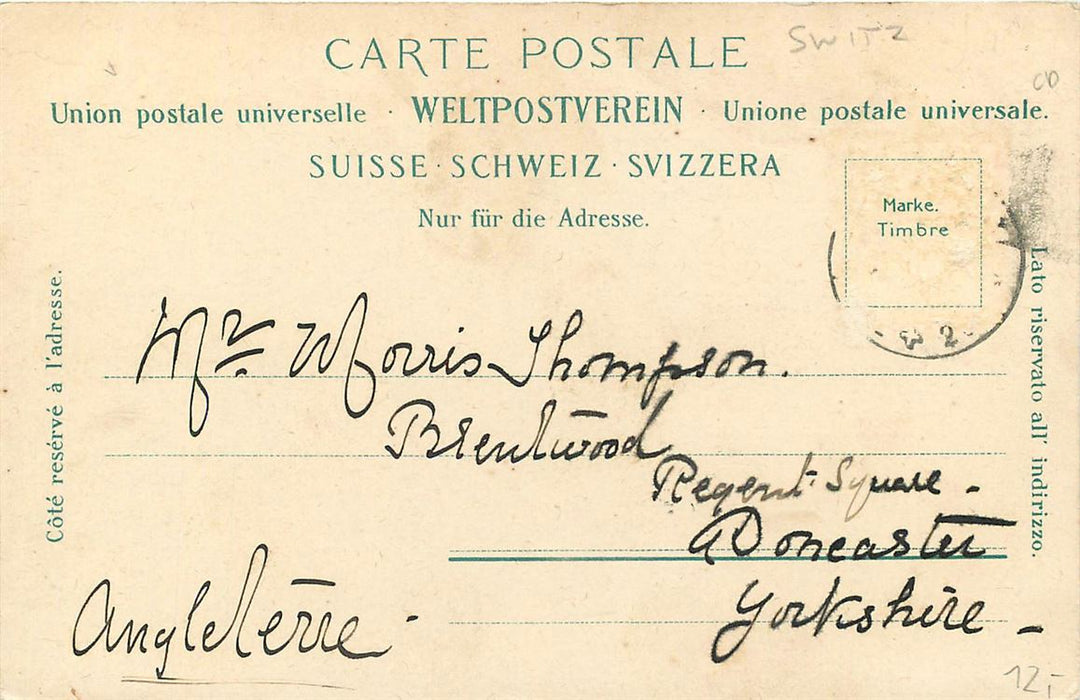 CARTE POSTALE
SWITZ
CD
Union postale universelle · WELTPOSTVEREIN · Unione postale universale.
SUISSE · SCHWEIZ · SVIZZERA
Nur für die Adresse.
Marke.
Timbre
2
Côté reservé à l'adresse.
Lato riservato all' indirizzo.
Mr. Morris Thompson.
Brentwood
Regent Square -
Doncaster
Yorkshire -
Angleterre -
12,-